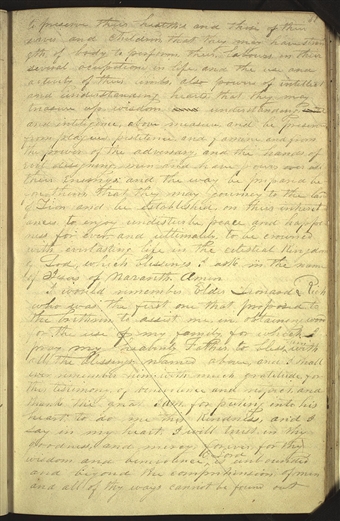 to preserve their healths and those of their
wives and children that they may have stren
gth of body to perform their labours in their
several ocupations in life and the use and
activity of their limbs also powers of intellect
and understanding hearts that they may
treasure up wisdom understanding
and inteligence, above measure and be preserved
from plagues pestilence and famine and from
the power of the adversary and the hands of
evil designing men and have power over all
their enemys and the way be prepared be
fore them that they may journey to the land
of Zion and be established on their inherit
ances to enjoy undisturbe peace and happi
ness for ever and ultimately to be crowned
with everlasting life in the celestial Kingdom
O Lord which blessings I ask in the name
of Jesus of Nazareth Amen
I would remember Elder Leonard Rich
who was the first one that proposed to
the brethren to assist me in obtaining wood
for the use of my family for which I
pray my heavenly Father to bless him with
all the blessings named above and I shall
ever remember him with much gratitude for
this testimony of benevolence and respect and
thank the great I am for puting into his
heart to do me this kindness, and I
say in my heart I will trust in thy
goodness, and mercy, forever for thy
wisdom and benevolence O Lord is unbounded
and beyond the comprehension of men
and all of thy ways cannot be found out